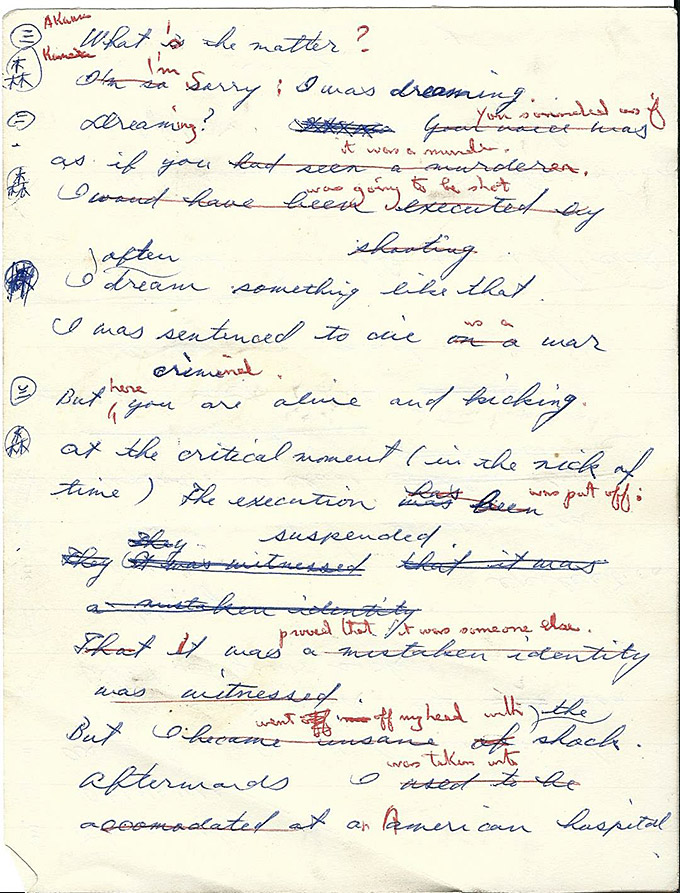 Akama
三 What is the matter ?
Kimura
森 I'm so I'm Sorry ; I was dreaming
you sounded as if
三 Dreaming? Your voice was
it was a murder.
as if you had seen a murderer.
was going to be shot
森 I woud have been executed by
shooting.
often
I dream something like that.
as a
I was sentenced to die on a war
criminal.
here
三 But you are alive and kicking.
森 at the critical moment (in the nick of
time) The execution was has been was put off:
They suspended.
They It was witnessed that it was
a mistaken identity
proved that it was someone else.
That It was a mistaken identity
was witnessed.
went off my head with the
But I became insane of shock.
was taken into
Afterwards I used to be
accomodated at an American hospital